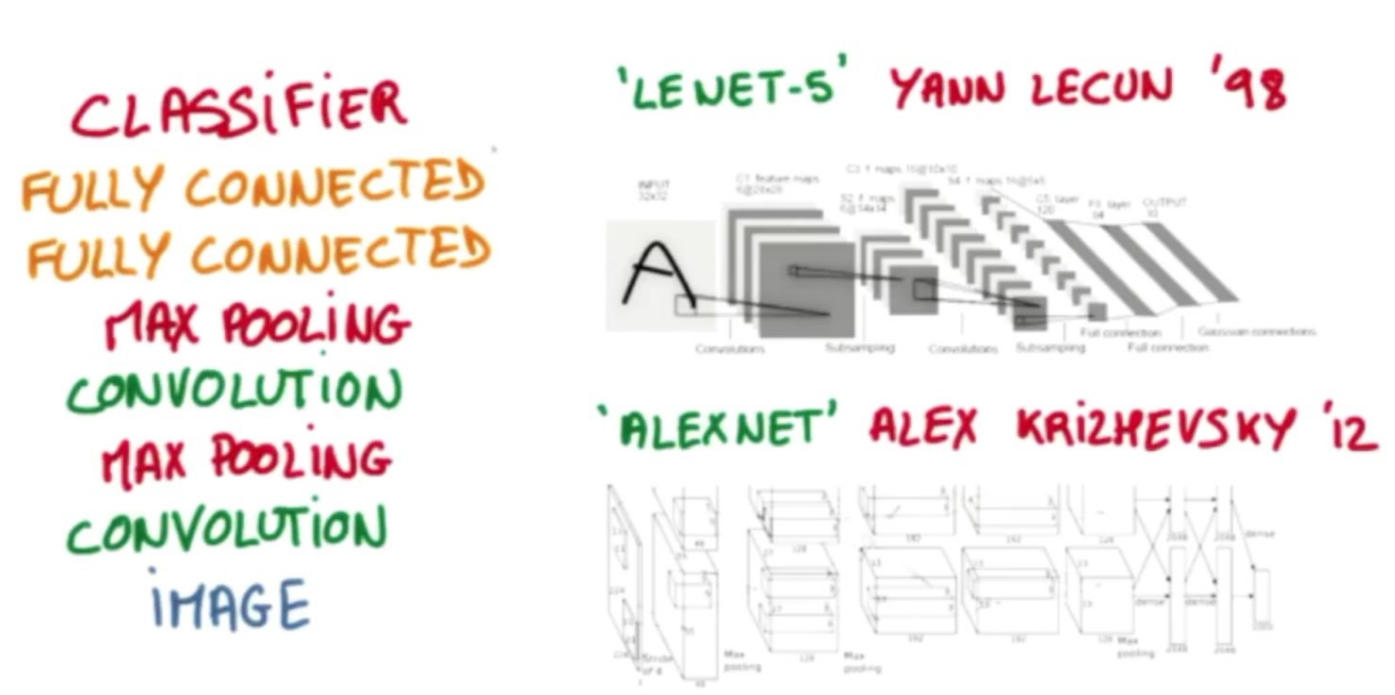 CLASSIFIER
FULLY CONNECTED
FULLY CONNECTED
MAX POOLING
CONVOLUTION
MAX POOLING
CONVOLUTION
IMAGE
'LENET-5' YANN LECUN '98
INPUT
32x32
C1: feature maps
6@28x28
S2: f. maps
6@14x14
C3: f. maps 16@10x10
S4: f. maps 16@5x5
C5: layer
120
F6: layer
84
OUTPUT
10
Convolutions
Subsampling
Convolutions
Subsampling
Full connection
Full connection
Gaussian connections
'ALEXNET' ALEX KRIZHEVSKY '12
48
128
192
192
128
2048
2048
dense
dense
dense
224
Stride
of 4
48
Max
pooling
128
Max
pooling
192
192
128
Max
pooling
2048
2048
1000